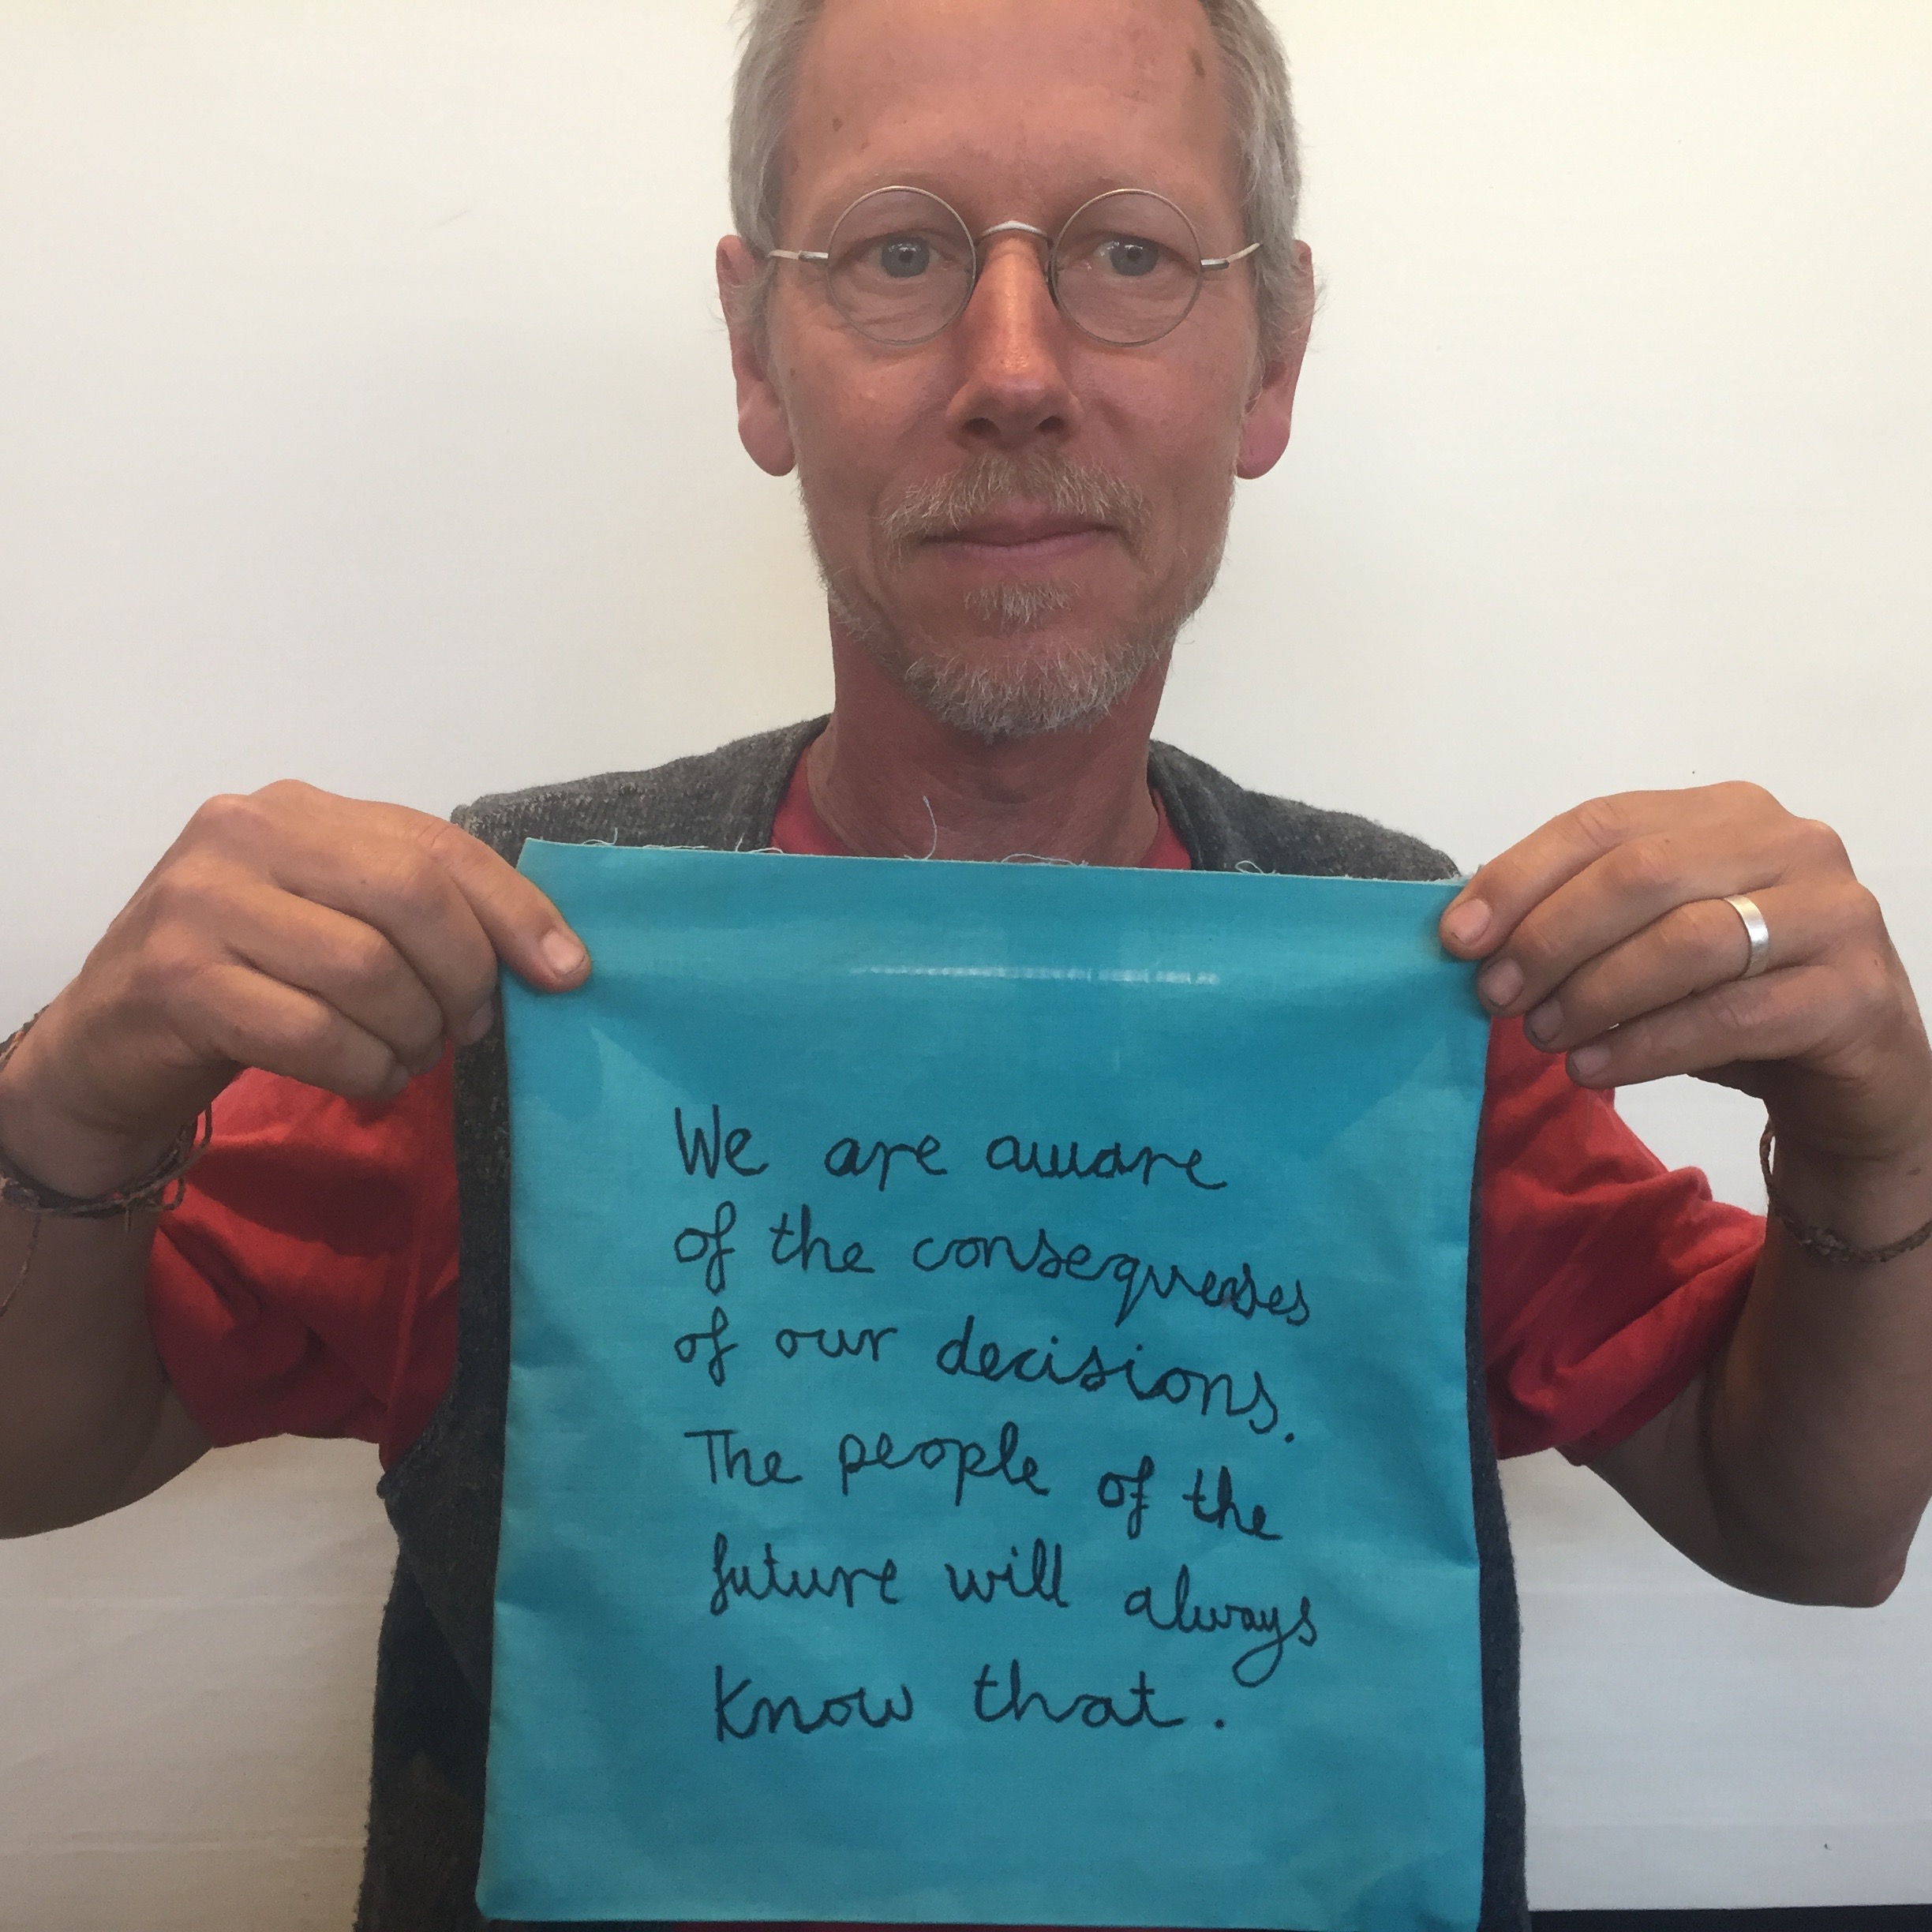 We are aware
of the consequenses
of our decisions.
The people of the
future will always
know that.